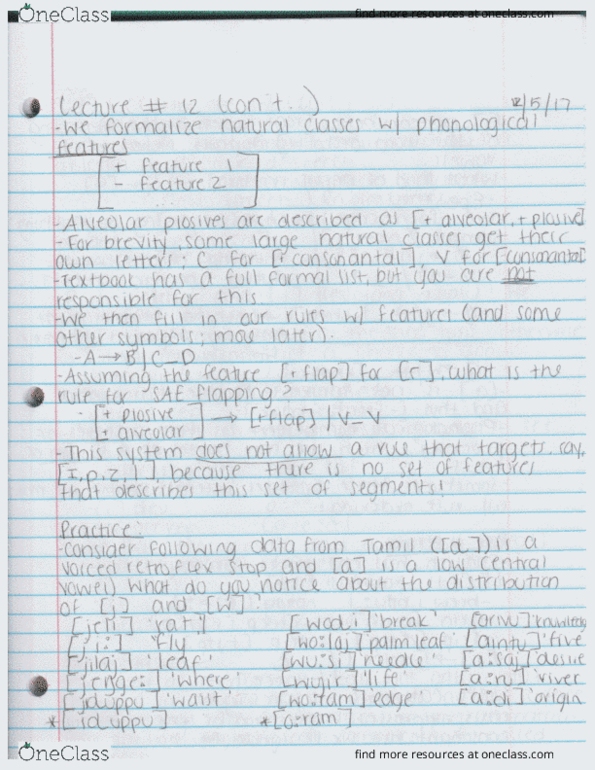 OneClass
find more resources at oneclass.com
Lecture # 12 (con't.)
2/5/17
-We formalize natural classes w/ phonological
features
[+ feature 1
- feature 2]
-Alveolar plosives are described as [+ alveolar, + plosive]
-For brevity, some large natural classes get their
own letters; C for [+ consonantal], V for [consonantal]
-Textbook has a full formal list, but you are not
responsible for this
-We then fill in our rules w/ features (and some
other symbols; more later).
-A → B / C_D
-Assuming the feature [+flap] for [ɾ], what is the
rule for SAE flapping?
-[+ plosive
+ alveolar] → [+flap] / V_V
-This system does not allow a rule that targets, say,
[I, p, z, l], because there is no set of features
that describes this set of segments!
Practice:
-Consider following data from Tamil ([ɖ]) is a
voiced retroflex stop and [a] is a low central
vowel) What do you notice about the distribution
of [j] and [w]?
[jeli] 'rat' [wodi] 'break' [arivu] 'knowing
[ji:] 'fly' [wo:laj] palm leaf' [aintu] 'five
[jilaj] 'leaf' [wu:si] 'needle' [a:saj] 'desire
[jenge:] 'where' [wujir] 'life' [a:ru] 'river
[jiduppu] 'waist' [wo:ram] edge' [a:di] 'origin
*[iduppu] *[o:ram]
OneClass
find more resources at oneclass.com